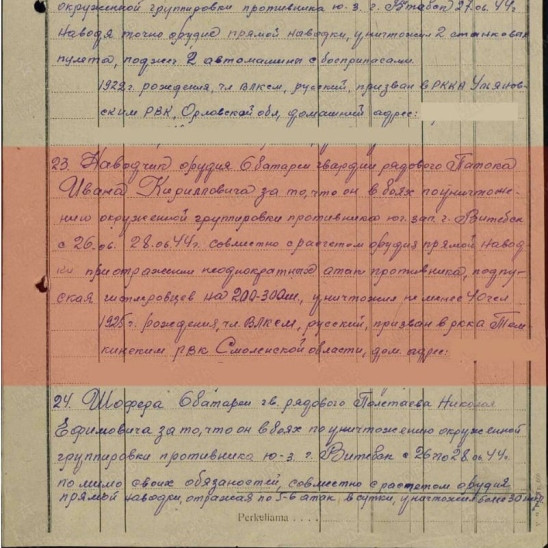 окруженной группировки противника ю-з. г. Витебск 27.06.44г.
Наводя точно орудие прямой наводки, уничтожил 2 станковых
пулета, поджег 2 автомашины с боеприпасами.
1922г. рождения, чл ВЛКСМ, русский, призван в РККА Ульянов-
ским РВК, Орловской обл, домашний адрес:
23. Наводчик орудия 6 батареи гвардии рядового Патока
Ивана Кирилловича за то, что он в боях по уничтоже-
нию окруженной группировки противника юг. зап. г. Витебск
с 26.06. 28.06.44г. совместно с расчетом орудия прямой навод
ки при отражении неоднократных атак противника, подпу-
ская гитлеровцев на 200-300м., уничтожил не менее 40 чел
1925г. рождения, чл. ВЛКСМ, русский, призван в РККА Тем-
кинским РВК Смоленской области, дом. адрес:
24. Шофера 6 батареи гв. рядового Полетаева Николая
Ефимовича за то, что он в боях по уничтожению окруженной
группировки противника ю-з. г. Витебск с 26 по 28.06.44г.
помимо своих обязаностей, совместно с расчетом орудия
прямой наводки, отражая по 5-6 атак в сутки, уничтожил более 30
Perkeliama ....